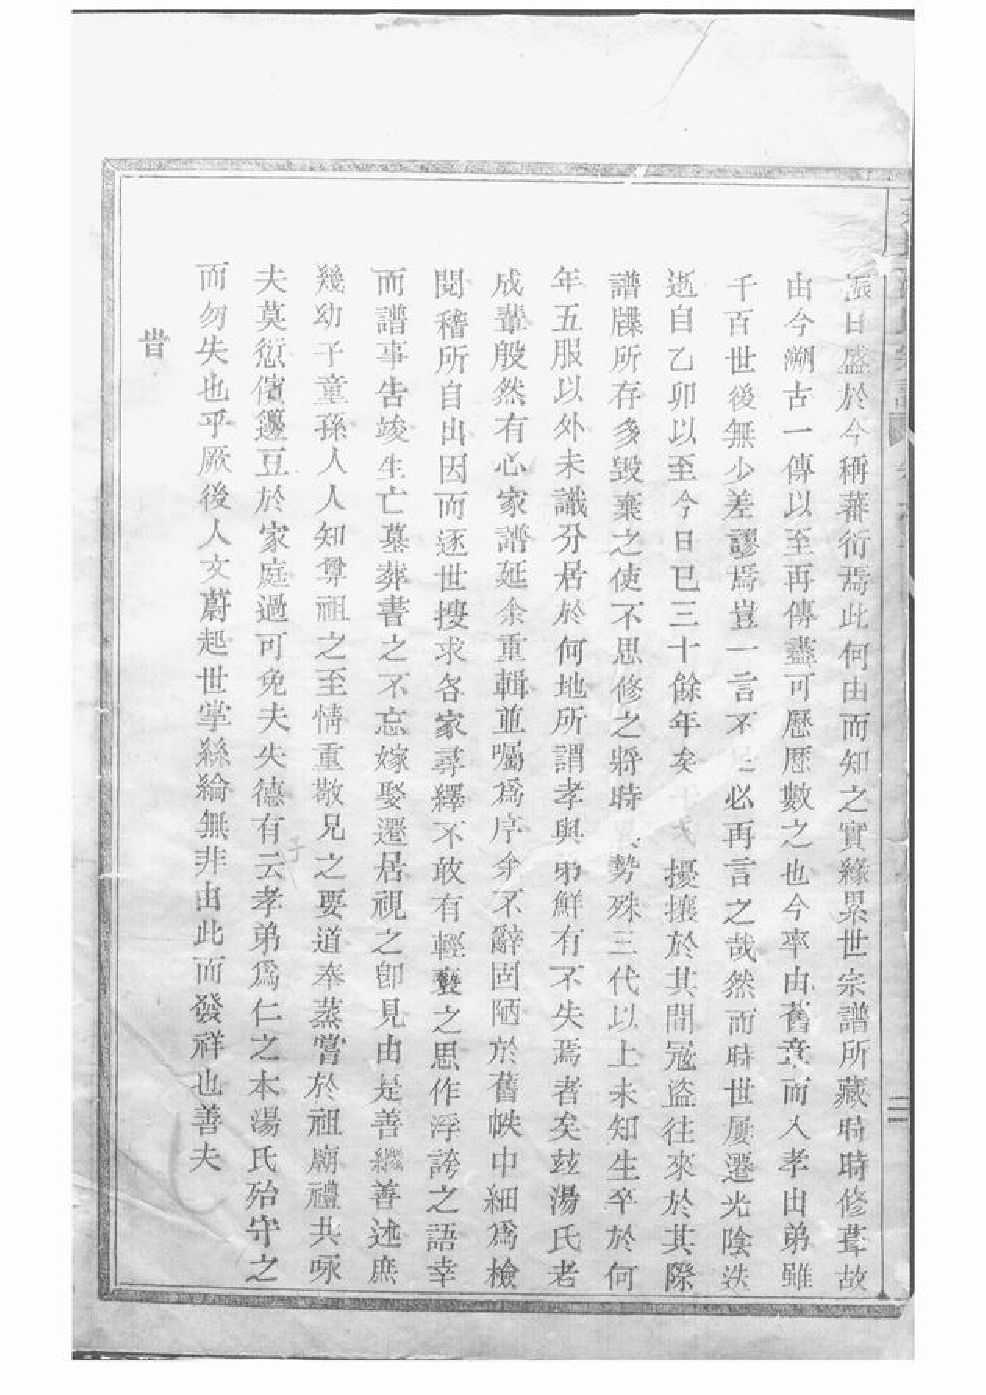 振日盛於今稱蕃衍焉此何由而知之實緣累世宗譜所藏時時修葺故
由今溯古一傳以至再傳盡可歷歷數之也今率由舊章而入孝出弟雖
千百世後無少差謬焉豈一言不必再言之哉然而時世屢遷光陰迭
逝自乙卯以至今日已三十餘年矣擾攘於其間冦盜往來於其際
譜牒所存多毀棄之使不思修之將時勢殊三代以上未知生卒於何
年五服以外未識分居於何地所謂孝與弟鮮有不失焉者矣茲湯氏老
成輩般然有心家譜延余重輯並囑爲序余不辭固陋於舊帙中細爲檢
閱稽所自出因而逐世搜求各家尋繹不敢有輕褻之思作浮誇之語幸
而譜事告竣生亡墓葬書之不忘嫁娶遷居視之卽見由是善繼善述庶
幾幼子童孫人人知尊祖之至情重敬兄之要道奉蒸嘗於祖廟禮共咏
夫莫愆儐籩豆於家庭過可免夫失德有云孝弟爲仁之本湯氏殆守之
而勿失也乎厥後人文蔚起世掌絲綸無非由此而發祥也善夫
旹